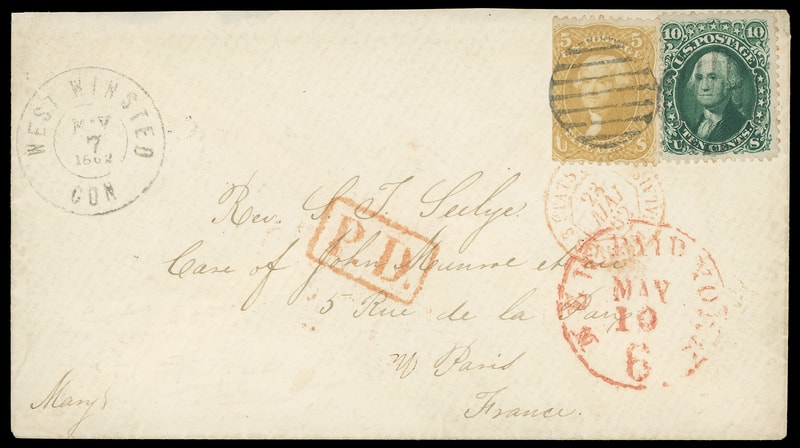 WEST WINSTED
MAY
7
1862
CON
5
5
U
S
10
10
U.S. POSTAGE
TEN CENTS.
U
S
23
MAI
Rev. S. T. Seelye.
P.D.
Care of John Munroe et cie
5 Rue de la Paix
Paris
France.
NEW YORK
PAID
MAY
10
6
Mary